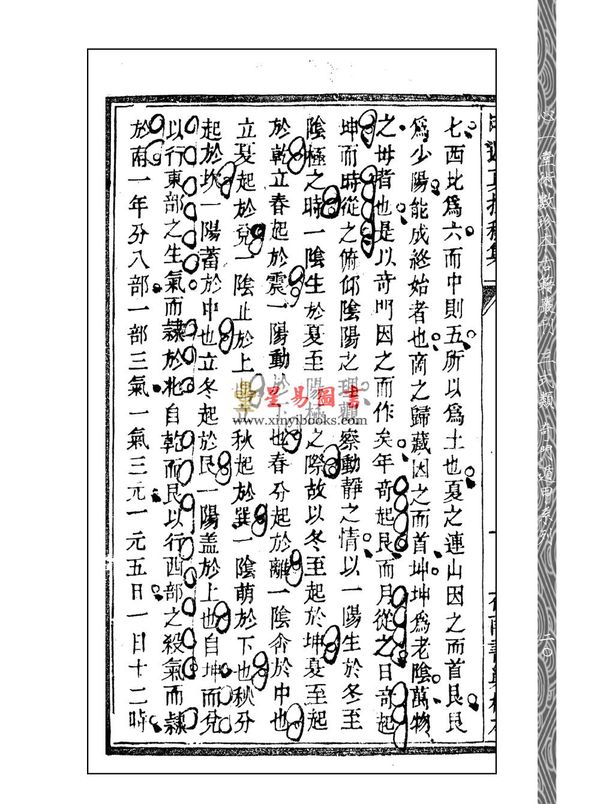 七西北為六而中則五所以為土也夏之連山因之而首艮艮
為少陽能成終始者也商之歸藏因之而首坤坤為老陰萬物
之母者也是以奇門因之而作矣年奇起艮而月從之日奇起
坤而時從之俯仰陰陽之理觀察動靜之情以一陽生於冬至
陰極之時一陰生於夏至陽極之際故以冬至起於坤夏至起
於乾立春起於震一陽動於下也春分起於離一陰介於中也
立夏起於兌一陰止於上也立秋起於巽一陰萌於下也秋分
起於坎一陽蓄於中也立冬起於艮一陽盖於上也自坤而兌
以行東部之生氣而隸於北自乾而艮以行西部之殺氣而隸
於南一年分八部一部三氣一氣三元一元五日一日十二時
星易圖書
www.xinyibooks.com
心一堂術數珍本古籍叢刊 三式類 奇門遁甲系列
二〇